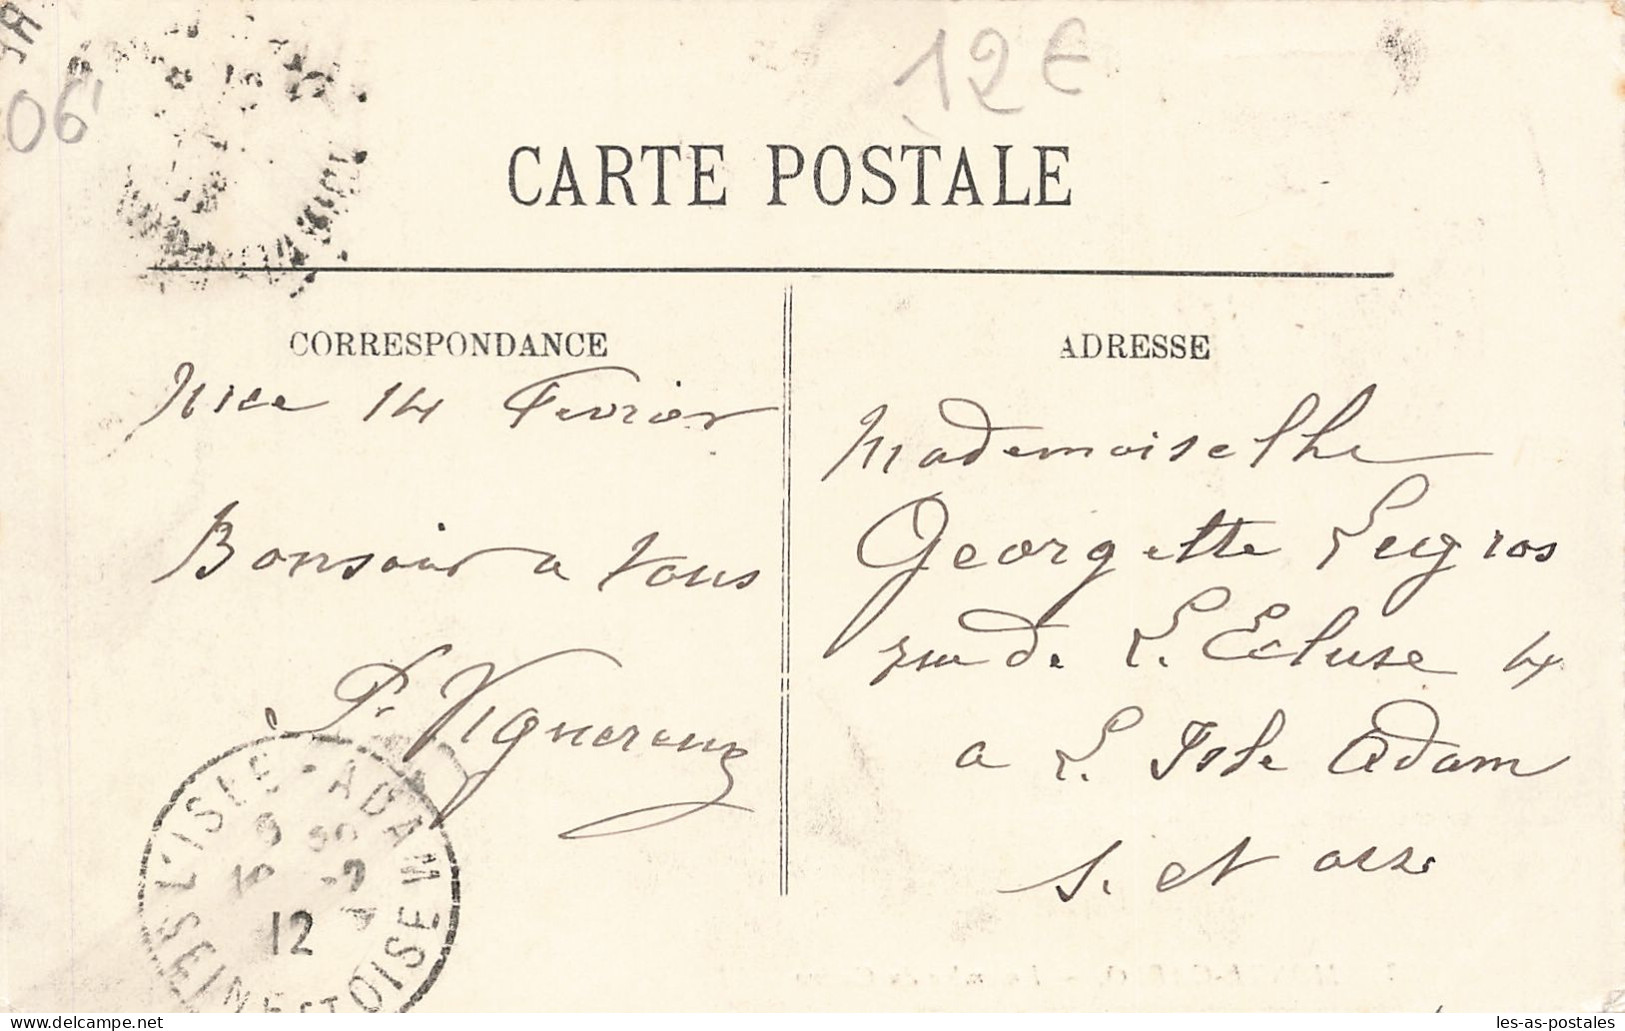 06
12 €
CARTE POSTALE
CORRESPONDANCE
Nice 14 Fevrier
Bonsoir a tous
P. Vignereux
ADRESSE
Mademoiselle
Georgette Legros
rue de L. Ecluse 4
a L. Isle Adam
S. et oise
L'ISLE-ADAM
12
SEINE ET OISE
les-as-postales